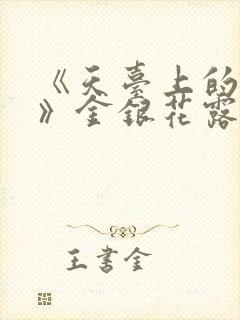 《天臺上的
》金銀花露
王書金